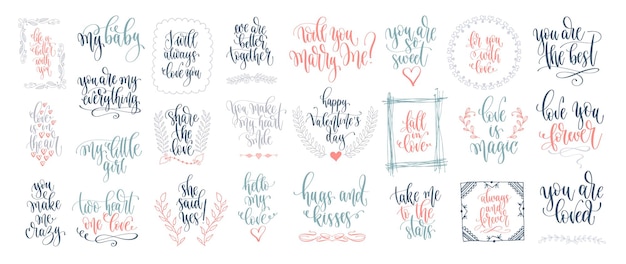 life is
better
with you
my baby
I will
always
love you
we are
better
together
Will you
Marry Me?
you are
so
sweet
for you
with
love
you are
the best
you are my
everything
love
is in
the air
share
the
love
you make
my heart
smile
happy
Valentine's
day
fall
in
love
love
is
magic
love you
forever
my little
girl
you
make
me
crazy
two heart
one love
she
said
yes!
hello
my
love
hugs and
kisses
take me
to the
stars
always
and
forever
you are
loved